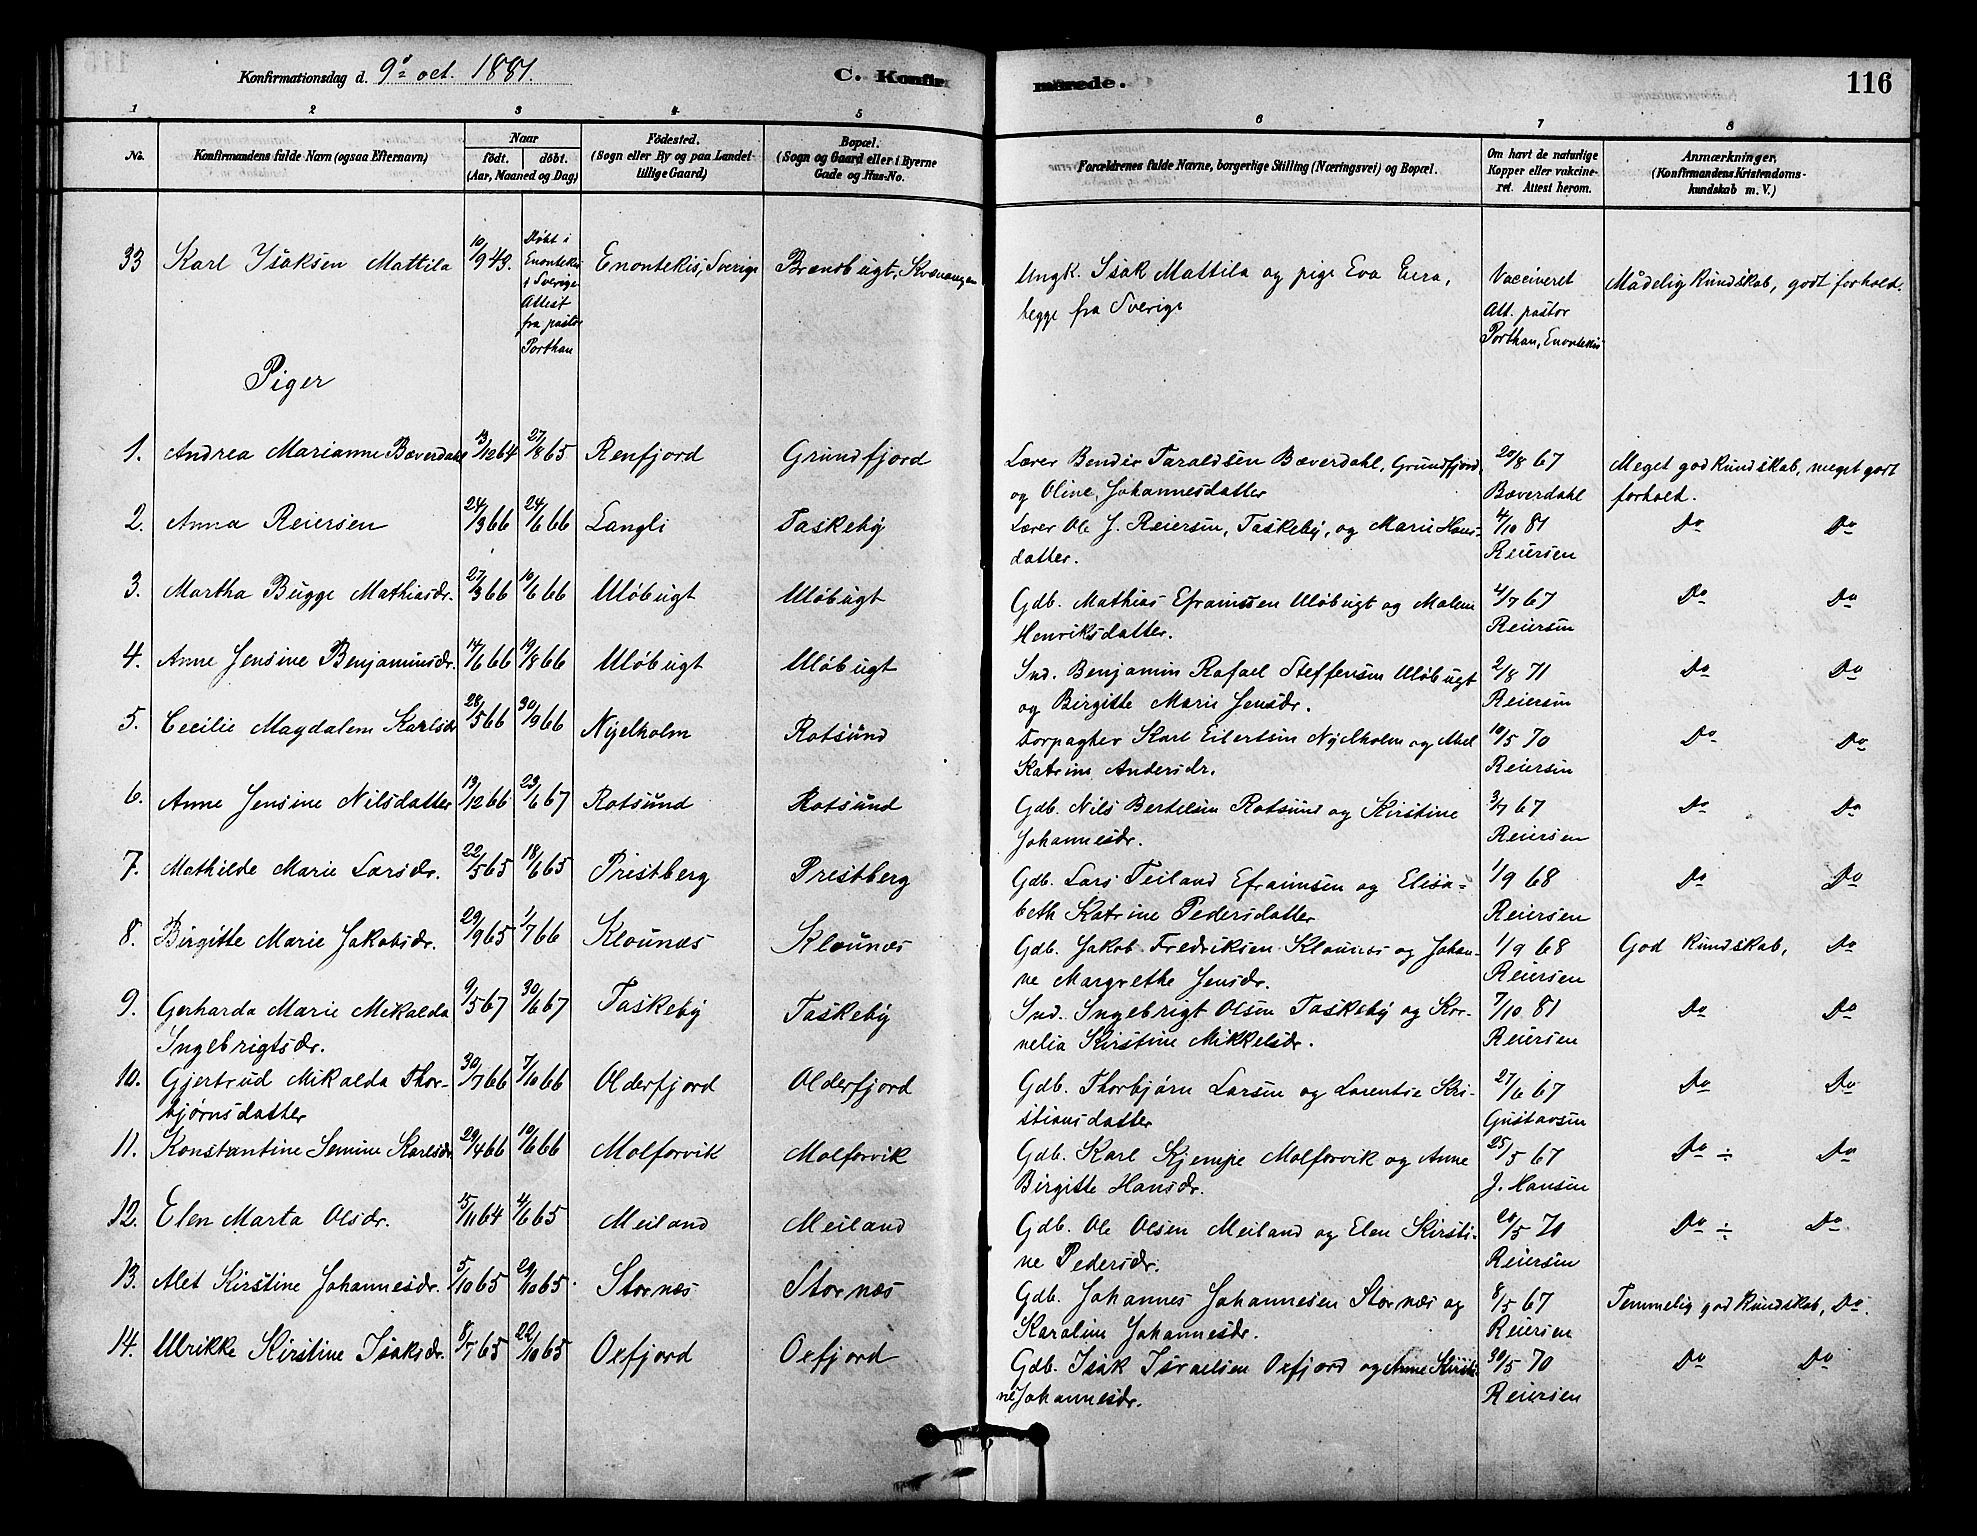 Konfirmationsdag d. 9de oct. 1881.
C. Konfirmerede.
116
1 2 3 4 5 6 7 8
No.
Konfirmandens fulde Navn (ogsaa Efternavn)
Naar
født. døbt.
(Aar, Maaned og Dag)
Fødested.
(Sogn eller By og paa Landet tillige Gaard)
Bopæl.
(Sogn og Gaard eller i Byerne Gade og Hus-No.
Forældrenes fulde Navne, borgerlige Stilling (Næringsvei) og Bopæl.
Om havt de naturlige Kopper eller vakcineret. Attest herom.
Anmærkninger,
(Konfirmandens Kristendomskundskab m. V.)
33 Karl Isaksen Mattila 10/9 43. Døbt i Enontekis i Sverige Attest fra pastor Porthan Enontekis, Sverige Brændbugt, Kvænangen Ungk. Isak Mattila og pige Eva Eera, begge fra Sverige Vacciveret Att. pastor Porthan, Enontekis Mådelig kundskab, godt forhold.
Piger
1. Andrea Marianne Bæverdahl 13/12 64 27/8 65 Renfjord Grundfjord Lærer Bender Taraldsen Bæverdahl, Grundfjord, og Oline Johannesdatter 20/8 67 Bæverdahl Meget god kundskab, meget godt forhold.
2. Anna Reiersen 24/3 66 24/6 66 Langli Taskeby Lærer Ole J. Reiersen, Taskeby, og Marie Hansdatter. 4/10 81 Reiersen Do Do
3. Martha Bugge Mathiasdr. 27/3 66 10/6 66 Uløbugt Uløbugt Gdb. Mathias Efraimsen Uløbugt og Malene Henriksdatter. 4/7 67 Reiersen Do Do
4. Anne Jensine Benjaminsdr. 14/6 66 19/8 66 Uløbugt Uløbugt Ind. Benjamin Rafael Steffensen Uløbugt og Birgitte Marie Jensdr. 2/8 71 Reiersen Do Do
5. Cecilie Magdalene Karlsdr 28/5 66 30/9 66 Nyelholm Rotsund Forpagter Karl Eilertsen Nyelholm og Alet Katrine Andersdr. 10/5 70 Reiersen Do Do
6. Anne Jensine Nilsdatter 13/12 66 23/6 67 Rotsund Rotsund Gdb. Nils Bertelsen Rotsund og Kirstine Johannesdr. 3/7 67 Reiersen Do Do
7. Mathilde Marie Larsdr. 22/5 65 18/6 65 Prestberg Prestberg Gdb. Lars Teiland Efraimsen og Elisabeth Katrine Pedersdatter 1/9 68 Reiersen Do Do
8. Birgitte Marie Jakobsdr. 29/9 65 1/7 66 Klounæs Klounæs Gdb. Jakob Fredriksen Klounæs og Johanne Margrethe Jensdr. 1/9 68 Reiersen God kundskab, Do
9. Gerharda Marie Mikalda Ingebrigtsdr. 9/5 67 30/6 67 Taskeby Taskeby Ind. Ingebrigt Olsen Taskeby og Kornelia Kirstine Mikkelsdr. 7/10 81 Reiersen Do Do
10. Gjertrud Mikalda Thorbjørnsdatter 30/7 66 7/10 66 Olderfjord Olderfjord Gdb. Thorbjørn Larsen og Lorentse Kristiansdatter 27/6 67 Gustavsen Do Do
11. Konstantine Semine Karlsdr. 29/4 66 10/6 66 Molforvik Molforvik Gdb. Karl Kjempe Molforvik og Anne Birgitte Hansdr. 25/5 67 J. Hansen Do ÷ Do
12. Elen Marta Olsdr. 15/11 64 4/6 65 Meiland Meiland Gdb. Ole Olsen Meiland og Elen Kirstine Pedersdr. 20/5 70 Reiersen Do ÷ Do
13. Alet Kirstine Johannesdr. 5/10 65 29/10 65. Stornæs Stornæs Gdb. Johannes Johannesen Stornæs og Karoline Johannesdr. 8/5 67 Reiersen Temmelig god kundskab, Do.
14. Ulrikke Kirstine Isaksdr. 8/7 65 22/10 65 Oxfjord Oxfjord Gdb. Isak Israelsen Oxfjord og Anne Kirstine Johannesdr. 30/5 70 Reiersen Do Do